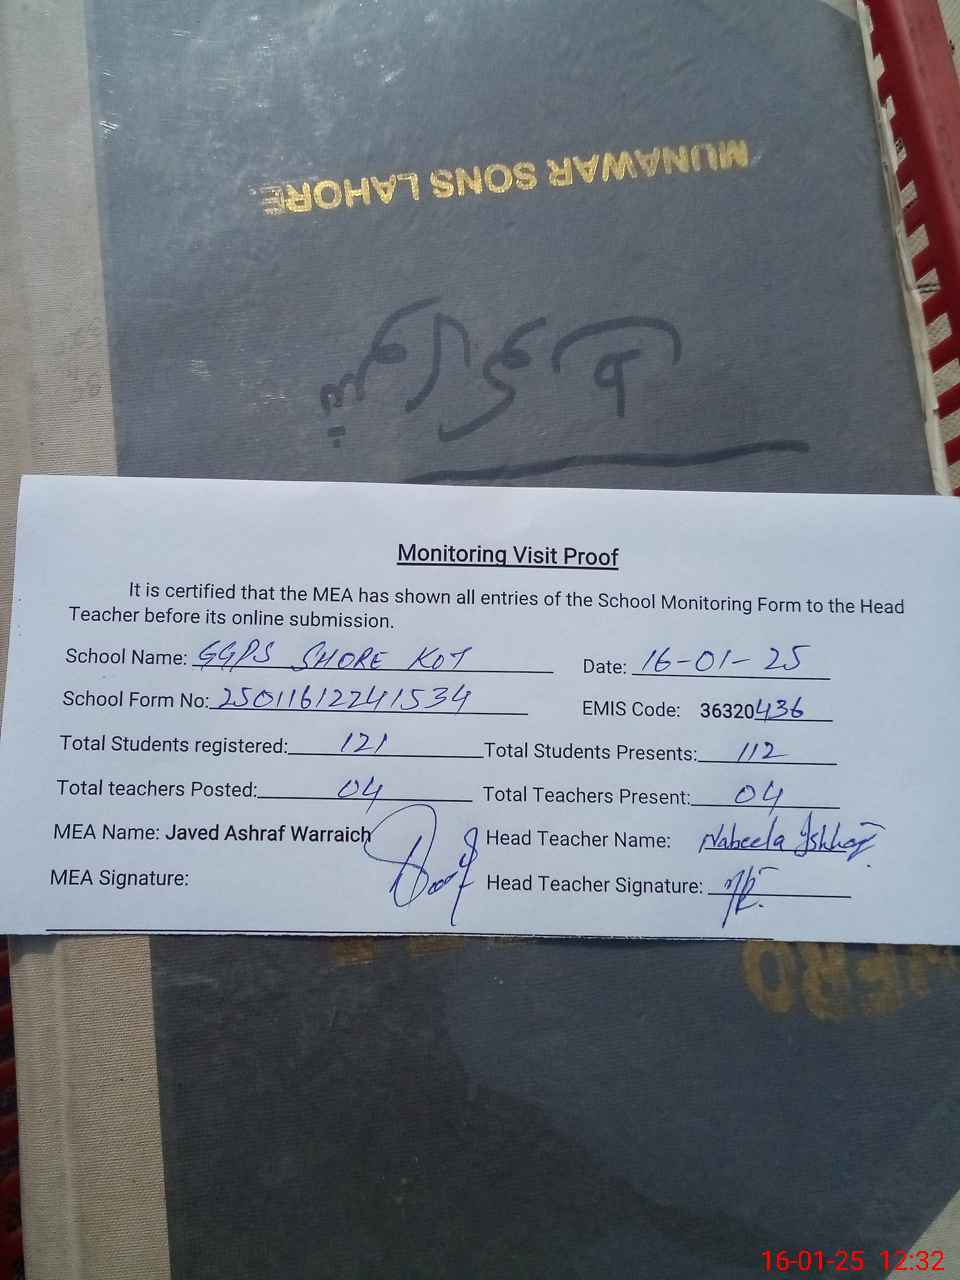 MUNAWAR SONS LAHORE
Monitoring Visit Proof
It is certified that the MEA has shown all entries of the School Monitoring Form to the Head
Teacher before its online submission.
School Name: GGPS SHORE KOT Date: 16-01-25
School Form No: 25011612241534 EMIS Code: 36320436
Total Students registered: 121 Total Students Presents: 112
Total teachers Posted: 04 Total Teachers Present: 04
MEA Name: Javed Ashraf Warraich Head Teacher Name: Nabeela
MEA Signature: Head Teacher Signature:
16-01-25 12:32